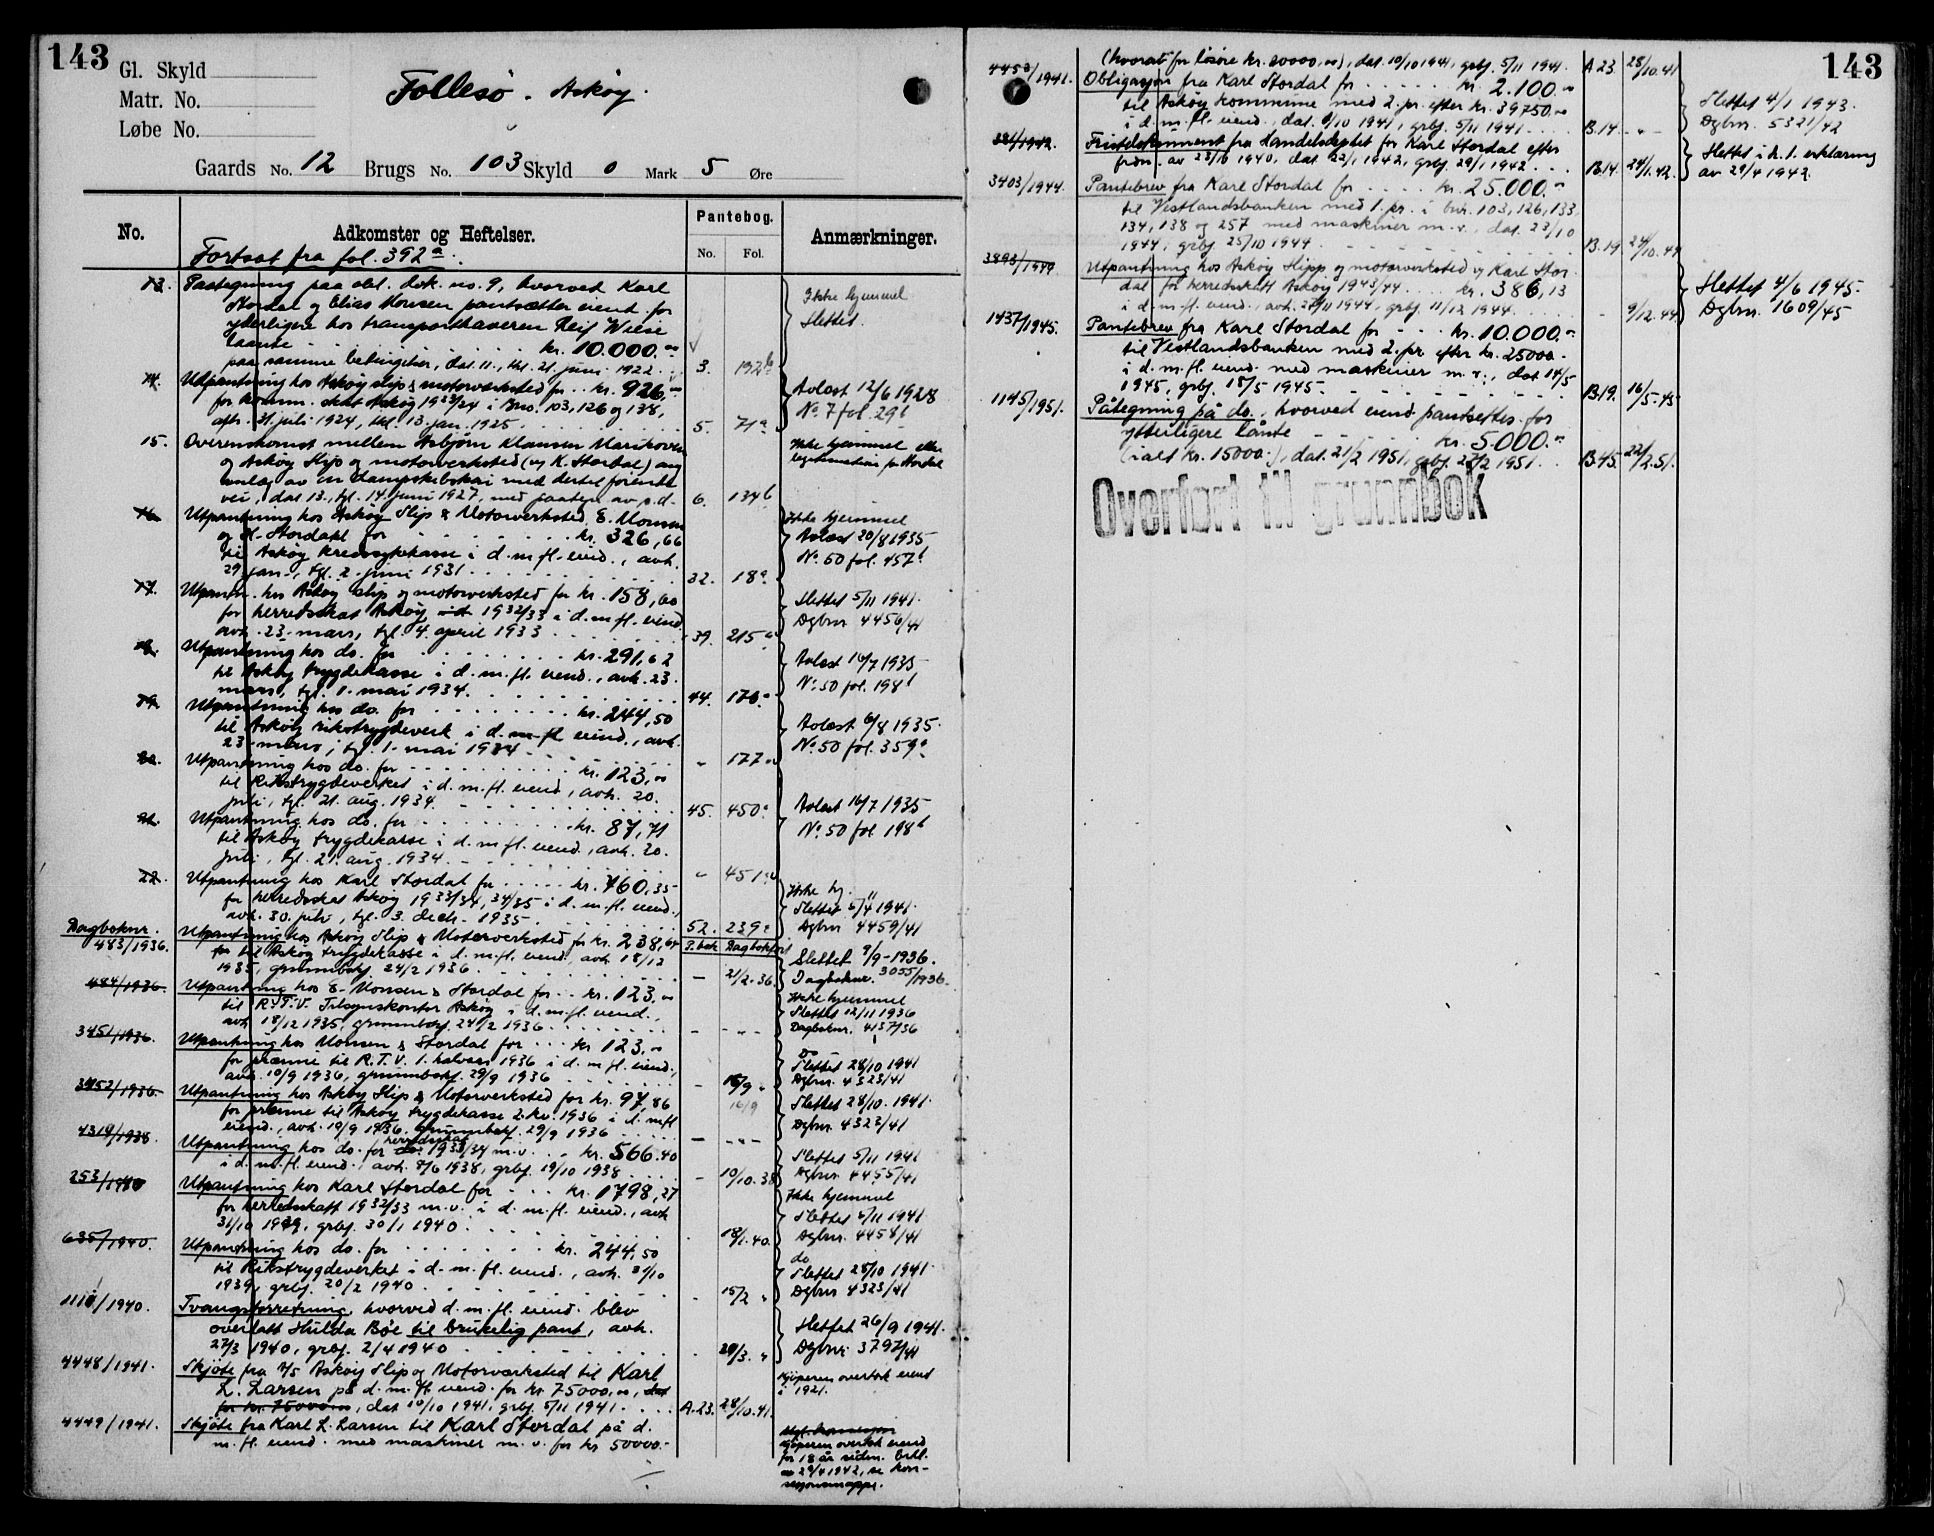 143
Gl. Skyld
Matr. No.
Løbe No.
Follesø. Askøy.
Gaards No. 12 Brugs No. 103 Skyld 0 Mark 5 Øre
No.
Adkomster og Heftelser.
Pantebog.
No. Fol.
Anmærkninger.
Fortsat fra fol. 392a.
13. Paategning paa obl. dok. no. 9, hvorved Karl
Stordal og Elias Monsen pantsætter eiend. for
yderligere hos transporthaveren Leif Wiese
laante kr. 10.000.00
paa samme betingelser, dat. 11., tgl. 21. juni 1922. 3. 192b
Ikke hjemmel
Slettet.
14. Udpantning hos Askøy slip & motorverksted for kr. 926,00
for komm. skat Askøy 1923/24 i Bno. 103, 126 og 138,
afh. 31. juli 1924, tgl. 13. jan. 1925. 5. 71a
Avlæst 12/6 1928
No. 7 fol. 29b
15. Overenskomst mellem Asbjørn Klausen Marikoven
og Askøy Slip og motorverksted (v/ K. Stordal) ang.
anlæg av en dampskibskai med dertil førende
vei, dat. 13., tgl. 14. juni 1927, med paategn. av s.d. 6. 134b
Ikke hjemmel eller
legitimation for Stordal
16. Utpantning hos Askøy Slip & Motorverksted, E. Monsen
og K. Stordahl for kr. 326,66
til Askøy kredssykekasse i d. m. fl. eiend., avh.
29. jan., tgl. 2. juni 1931 32. 18a
Ikke hjemmel
Avlæst 20/8 1935
No. 50 fol. 457b
17. Utpantn. hos Askøy slip og motorverksted for kr. 158,60
for herredsskat Askøy 1932/33 i d. m. fl. eiend.
avh. 23. mars, tgl. 4. april 1933 39. 215a
Slettet 5/11 1941.
Dgbnr. 4456/41
18. Utpantning hos do. for kr. 291,62
til Askøy trygdekasse i d. m. fl. eiend., avh. 23.
mars, tgl. 1. mai 1934. 44. 176a
Avlæst 16/7 1935
No. 50 fol. 198b
19. Utpantning hos do. for kr. 244,50
til Askøy rikstrygdeverk i d. m. fl. eiend., avh.
23. mars, tgl. 1. mai 1934 - 177a
Avlæst 6/8 1935.
No. 50 fol. 359a
20. Utpantning hos do. for kr. 123,00
til Rikstrygdeverket i d. m. fl. eiend., avh. 20.
juli, tgl. 21. aug. 1934. 45. 450a
Avlæst 16/7 1935
No. 50 fol. 198b
21. Utpantning hos do. for kr. 87,71
til Askøy trygdekasse i d. m. fl. eiend., avh. 20.
juli, tgl. 21. aug. 1934. - 451a
22. Utpantning hos Karl Stordal for kr. 760,35
for herredsskat Askøy 1933/34, 34/35 i d. m. fl. eiend.,
avh. 30. juli, tgl. 3. decb. 1935. 52. 239a
Ikke hj.
Slettet 5/11 1941.
Dgbnr 4459/41
Dagboknr.
P. bok Dagbokført
483/1936. Utpantning hos Askøy Slip & Motorverksted for kr. 238,64
til Askøy trygdekasse i d. m. fl. eiend., avh. 18/12
1935, grunnboksf. 24/2 1936. - 21/2-36.
Slettet 9/9-1936.
Dagboknr. 3055/1936.
484/1936. Utpantning hos E. Monsen & Stordal for kr. 123,00
til R.T.V. Tilsynskontor Askøy i d. m. fl. eiend.,
avh. 18/12 1935, grunnboksf. 24/2 1936. - - " -
Ikke hjemmel
Slettet 12/11 1936
Dagboknr. 4137/36
3451/1936. Utpantning hos Monsen & Stordal for kr. 123,00
for premie til R.T.V. 1. halvaar 1936 i d. m. fl. eiend.,
avh. 10/9 1936, grunnboksf. 29/9 1936 - 16/9 "
Do
Slettet 28/10 1941
Dgbnr. 4323/41
3452/1936. Utpantning hos Askøy Slip & Motorverksted for kr. 97,86
for premie til Askøy trygdekasse 2. kv. 1936 i d. m. fl.
eiend., avh. 10/9 1936, grunnboksf. 29/9 1936 - - " -
16/9
Slettet 28/10. 1941.
Dgbnr. 4323/41
4319/1938. Utpantning hos do. for herredsskat 1933/34 m.v. kr. 566.40
i d. m. fl. eiend., avh. 8/6 1938, grbf. 19/10 1938 - 10/10.38
Slettet 5/11 1941
Dgbnr. 4455/41
253/1940 Utpantning hos Karl Stordal for kr. 1798,27
for herredsskatt 1932/33 m.v. i d. m. fl. eiend., avh.
31/10 1939, grbf. 30/1 1940. - 18/1.40.
Ikke hjemmel
Slettet 5/11 1941.
Dgbnr. 4458/41
635/1940. Utpantning hos do. for kr. 244,50
til Rikstrygdeverket i d. m. fl. eiend., avh. 31/10
1939, grbf. 20/2 1940 - 15/2 "
do
Slettet 28/10 1941.
Dgbnr. 4323/41
1110/1940. Tvangsforretning, hvorved d. m. fl. eiend. blev
overlatt Hulda Bøe til brukelig pant, avh.
27/3 1940, grbf. 2/4 1940 - 29/3. "
Slettet 26/9 1941.
Dgbnr. 3792/41
4448/1941. Skjøte fra A/S Askøy Slip og Motorverksted til Karl
L. Larsen på d. m. fl. eiend. for kr. 75000,00,
for kr. 75000.00, dat. 10/10 1941, grbf. 5/11 1941. A.23. 28/10.41.
Kjøperen overtok eiend.
i 1921.
4449/1941. Skjøte fra Karl L. Larsen til Karl Stordal på d.
m. fl. eiend. med maskiner m.v. for kr 50000.-
kjøperen overtok eiend
for 18 år siden. Erkl.
av 29/4 1942, se kon-
sesjonsmappe.
143
(hvorav for løsøre kr. 20000,00), dat. 10/10 1941, grbf. 5/11 1941. A 23. 28/10.41
4450/1941. Obligasjon fra Karl Stordal for kr. 2.100.00
til Askøy kommune med 2. pr. efter kr. 39750.00
i d. m. fl. eiend., dat. 9/10 1941, grbf. 5/11 1941. B.14. - " -
Slettet 4/1 1943.
Dgbnr. 5321/42
381/1942. Fristdokument fra Handelsdeptet for Karl Stordal efter
frdn. av 23/10 1940, dat. 22/1 1942, grbf. 29/1 1942 B.14. 24/1.42.
Slettet i h. t. erklæring
av 29/4 1942.
3403/1944. Pantebrev fra Karl Stordal for kr. 25.000.00
til Vestlandsbanken med 1. pr. i bnr. 103, 126, 133,
134, 138 og 257 med maskiner m.v., dat. 23/10
1944, grbf. 25/10 1944. B.19 24/10.44
3893/1944 Utpantning hos Askøy Slipp og motorverksted v/ Karl Stor-
dal for herredsskatt Askøy 1943/44 kr. 386,13
i d. m. fl. eiend., avh. 28/11 1944, grbf. 11/12 1944. - 9/12.44
Slettet 4/6 1945.
Dgbnr. 1609/45
1437/1945. Pantebrev fra Karl Stordal for kr. 10.000.00
til Vestlandsbanken med 2. pr. efter kr. 25000.-
i d. m. fl. eiend. med maskiner m.v., dat 14/5
1945, grbf. 18/5 1945. B.19. 16/5-45
1145/1951. Påtegning på do., hvorved eiend. pantsettes for
ytterligere lånte kr. 5.000.00
(ialt kr. 15000.-), dat. 21/2 1951, grbf. 27/2 1951. B.45. 22/2.51.
Overført til grunnbok